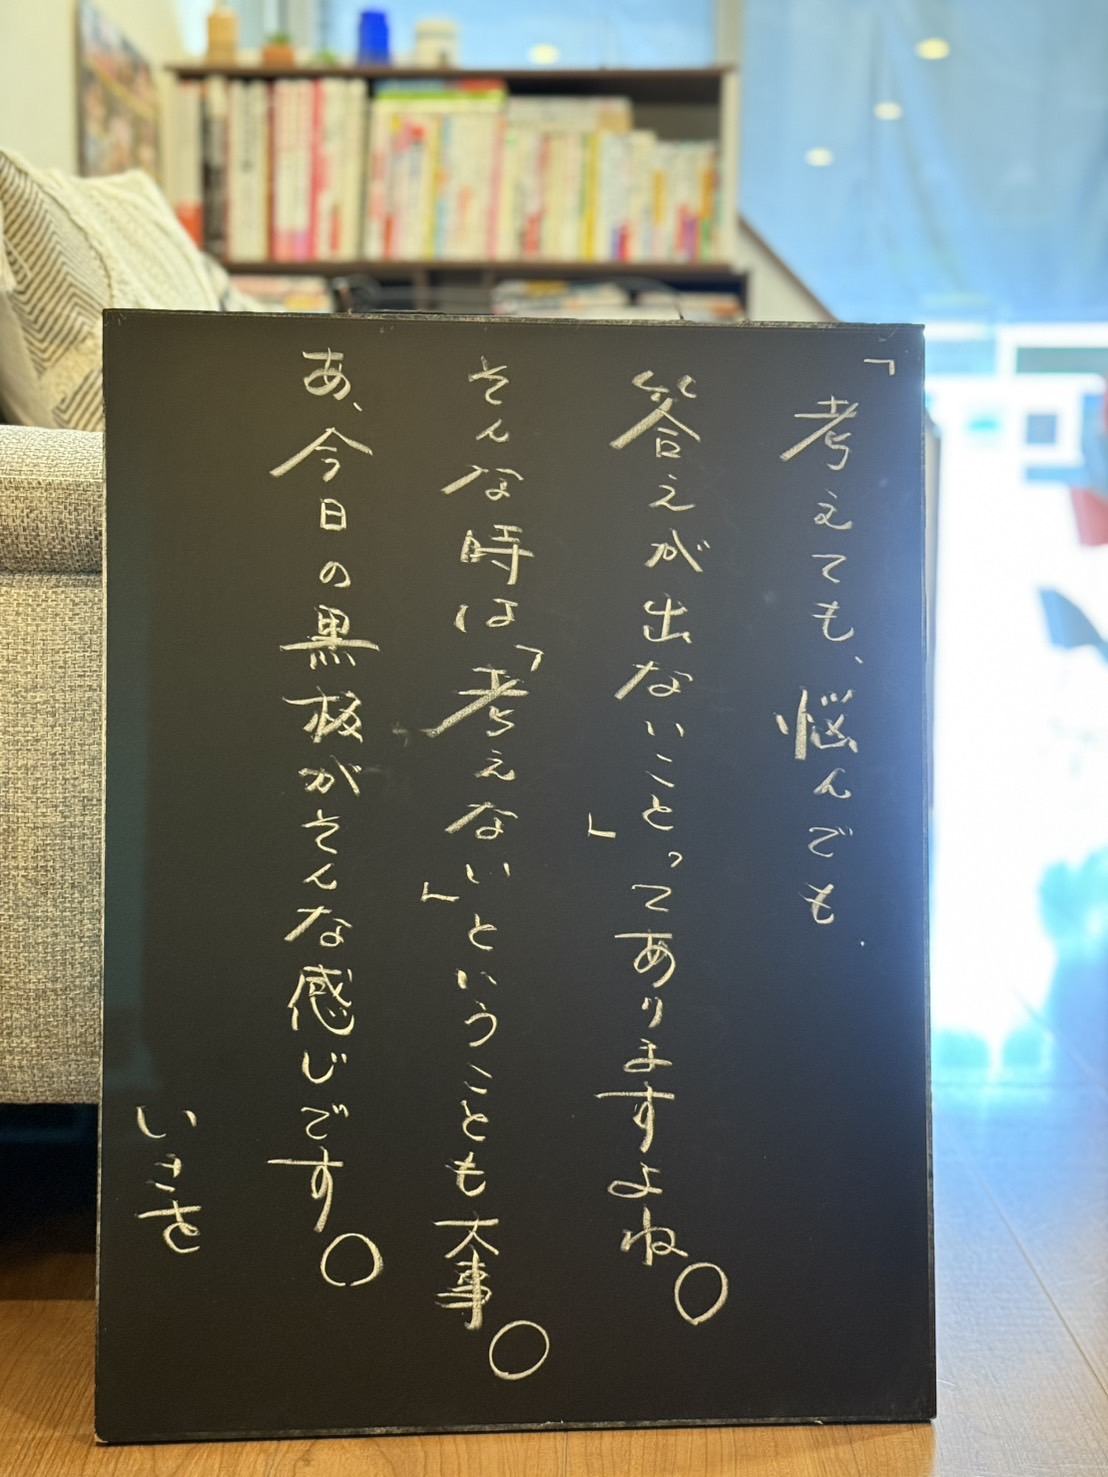 「考えても、悩んでも
答えが出ないこと」ってありますよね。
そんな時は「考えない」ということも大事。
あ、今日の黒板がそんな感じです。
いさを